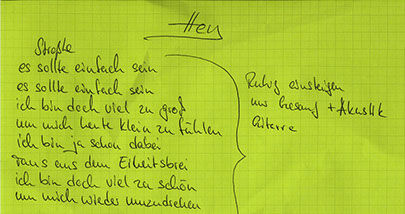 Hey
Strophe
es sollte einfach sein
es sollte einfach sein
ich bin doch viel zu groß
um mich heute klein zu fühlen
ich bin ja schon dabei
raus aus dem Eiheitsbrei
ich bin doch viel zu schön
um mich wieder umzudrehen
Ruhig einsteigen
nur Gesang + Akustik
Gitarre